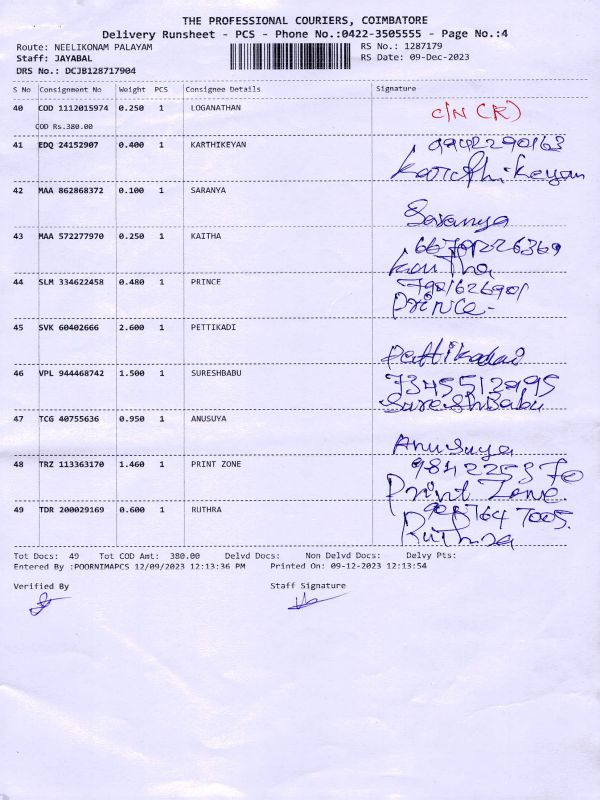 THE PROFESSIONAL COURIERS, COIMBATORE
Delivery Runsheet - PCS - Phone No.:0422-3505555 - Page No.:4
Route: NEELIKONAM PALAYAM RS No.: 1287179
Staff: JAYABAL RS Date: 09-Dec-2023
DRS No.: DCJB128717904
S No Consignment No Weight PCS Consignee Details Signature
40 COD 1112015974 0.250 1 LOGANATHAN C/N (R)
COD Rs.380.00
9942290163
41 EDQ 24152907 0.400 1 KARTHIKEYAN Karthikeyan
42 MAA 862868372 0.100 1 SARANYA
Saranya
43 MAA 572277970 0.250 1 KAITHA
44 SLM 334622458 0.480 1 PRINCE
Prince
45 SVK 60402666 2.600 1 PETTIKADI
46 VPL 944468742 1.500 1 SURESHBABU 7345512995
SureshBabu
47 TCG 40755636 0.950 1 ANUSUYA
Anusuya
48 TRZ 113363170 1.460 1 PRINT ZONE
Print Zone
49 TDR 200029169 0.600 1 RUTHRA
Ruthra
Tot Docs: 49 Tot COD Amt: 380.00 Delvd Docs: Non Delvd Docs: Delvy Pts:
Entered By :POORNIMAPCS 12/09/2023 12:13:36 PM Printed On: 09-12-2023 12:13:54
Verified By Staff Signature